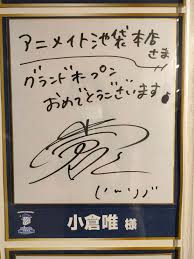 アニメイト池袋本店さま
グランドオープン
おめでとうございます!
小倉唯 様